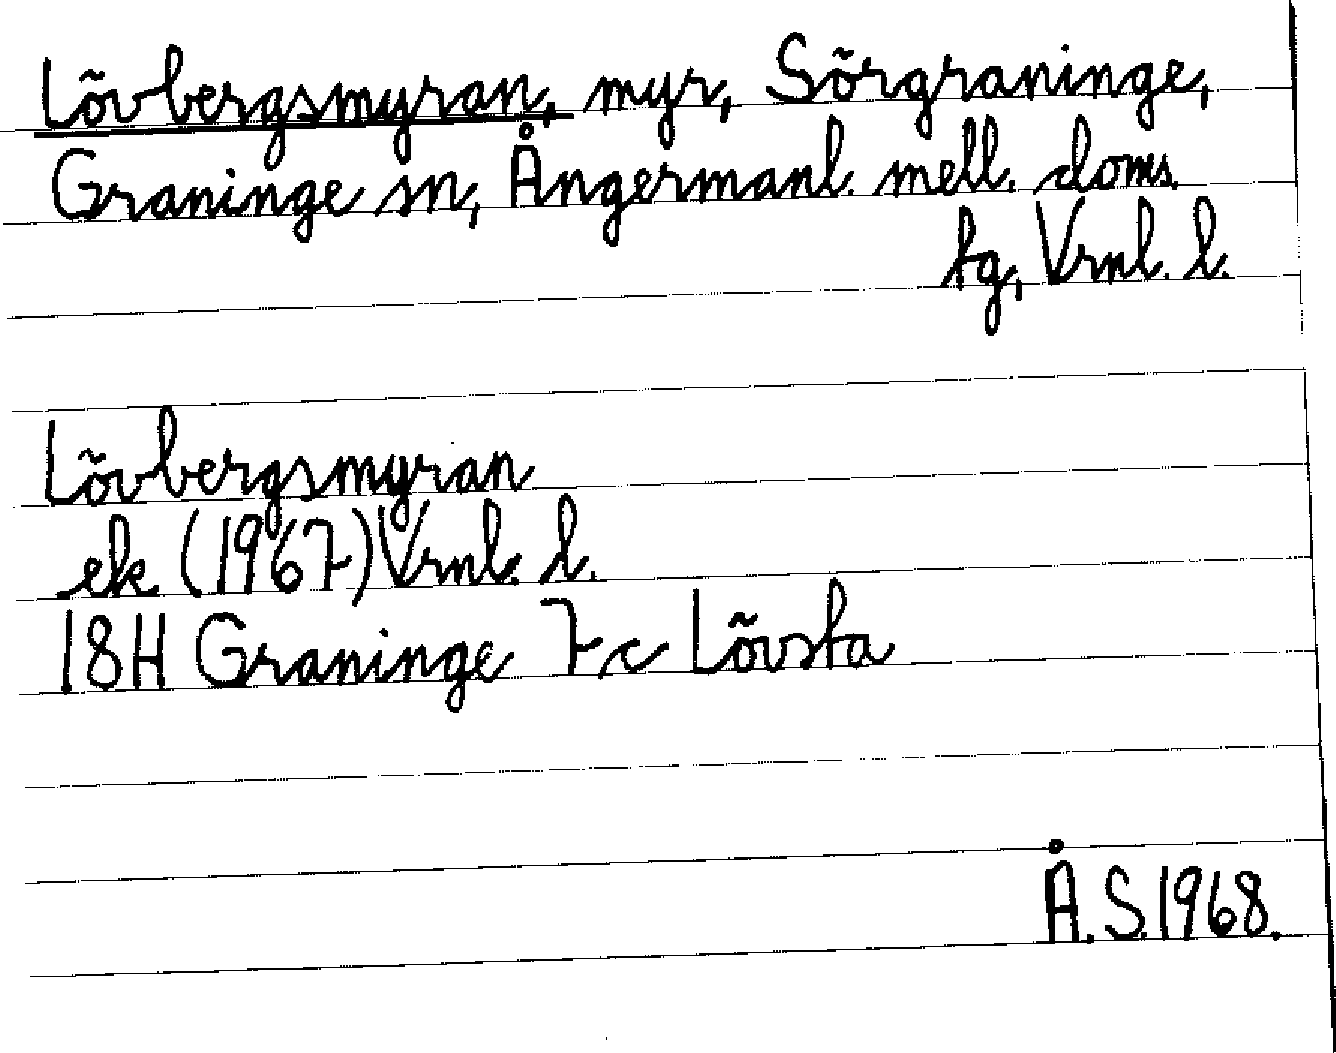 Lövbergsmyran, myr, Sörgraninge,
Graninge sn, Ångermanl. mell. doms.
tg, Vrnl. l.
Lövbergsmyran
ek (1967) Vrnl. l.
18H Graninge 7c Lövsta
Å.S. 1968.